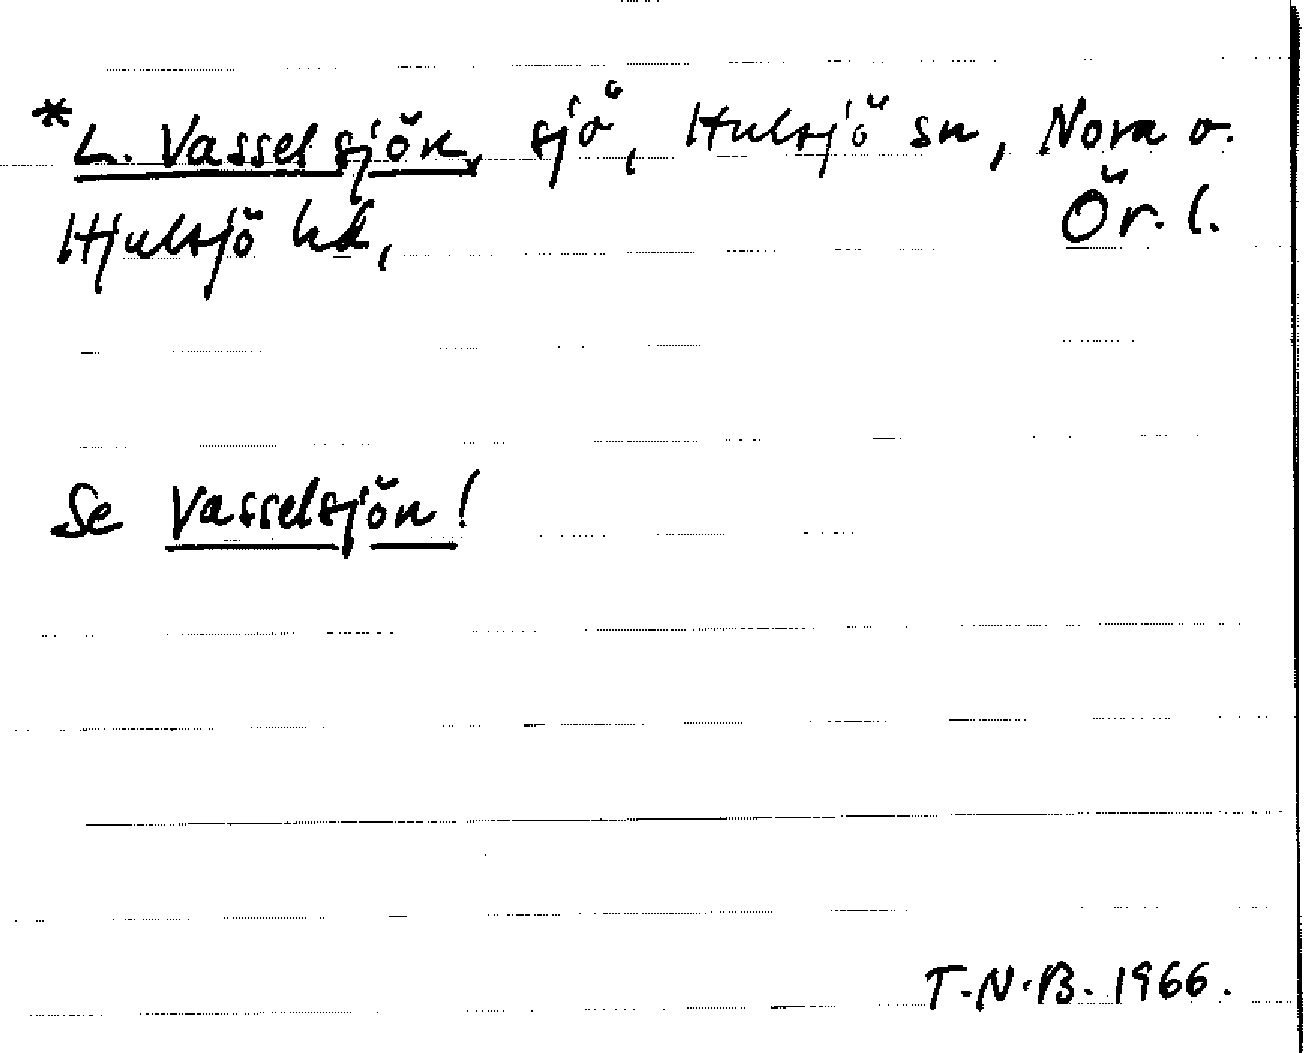 *L. Vasselsjön, sjö, Hulsjö sn, Nora o.
Hjulsjö hd, Ör. l.
Se Vasselsjön!
T.N.B. 1966.